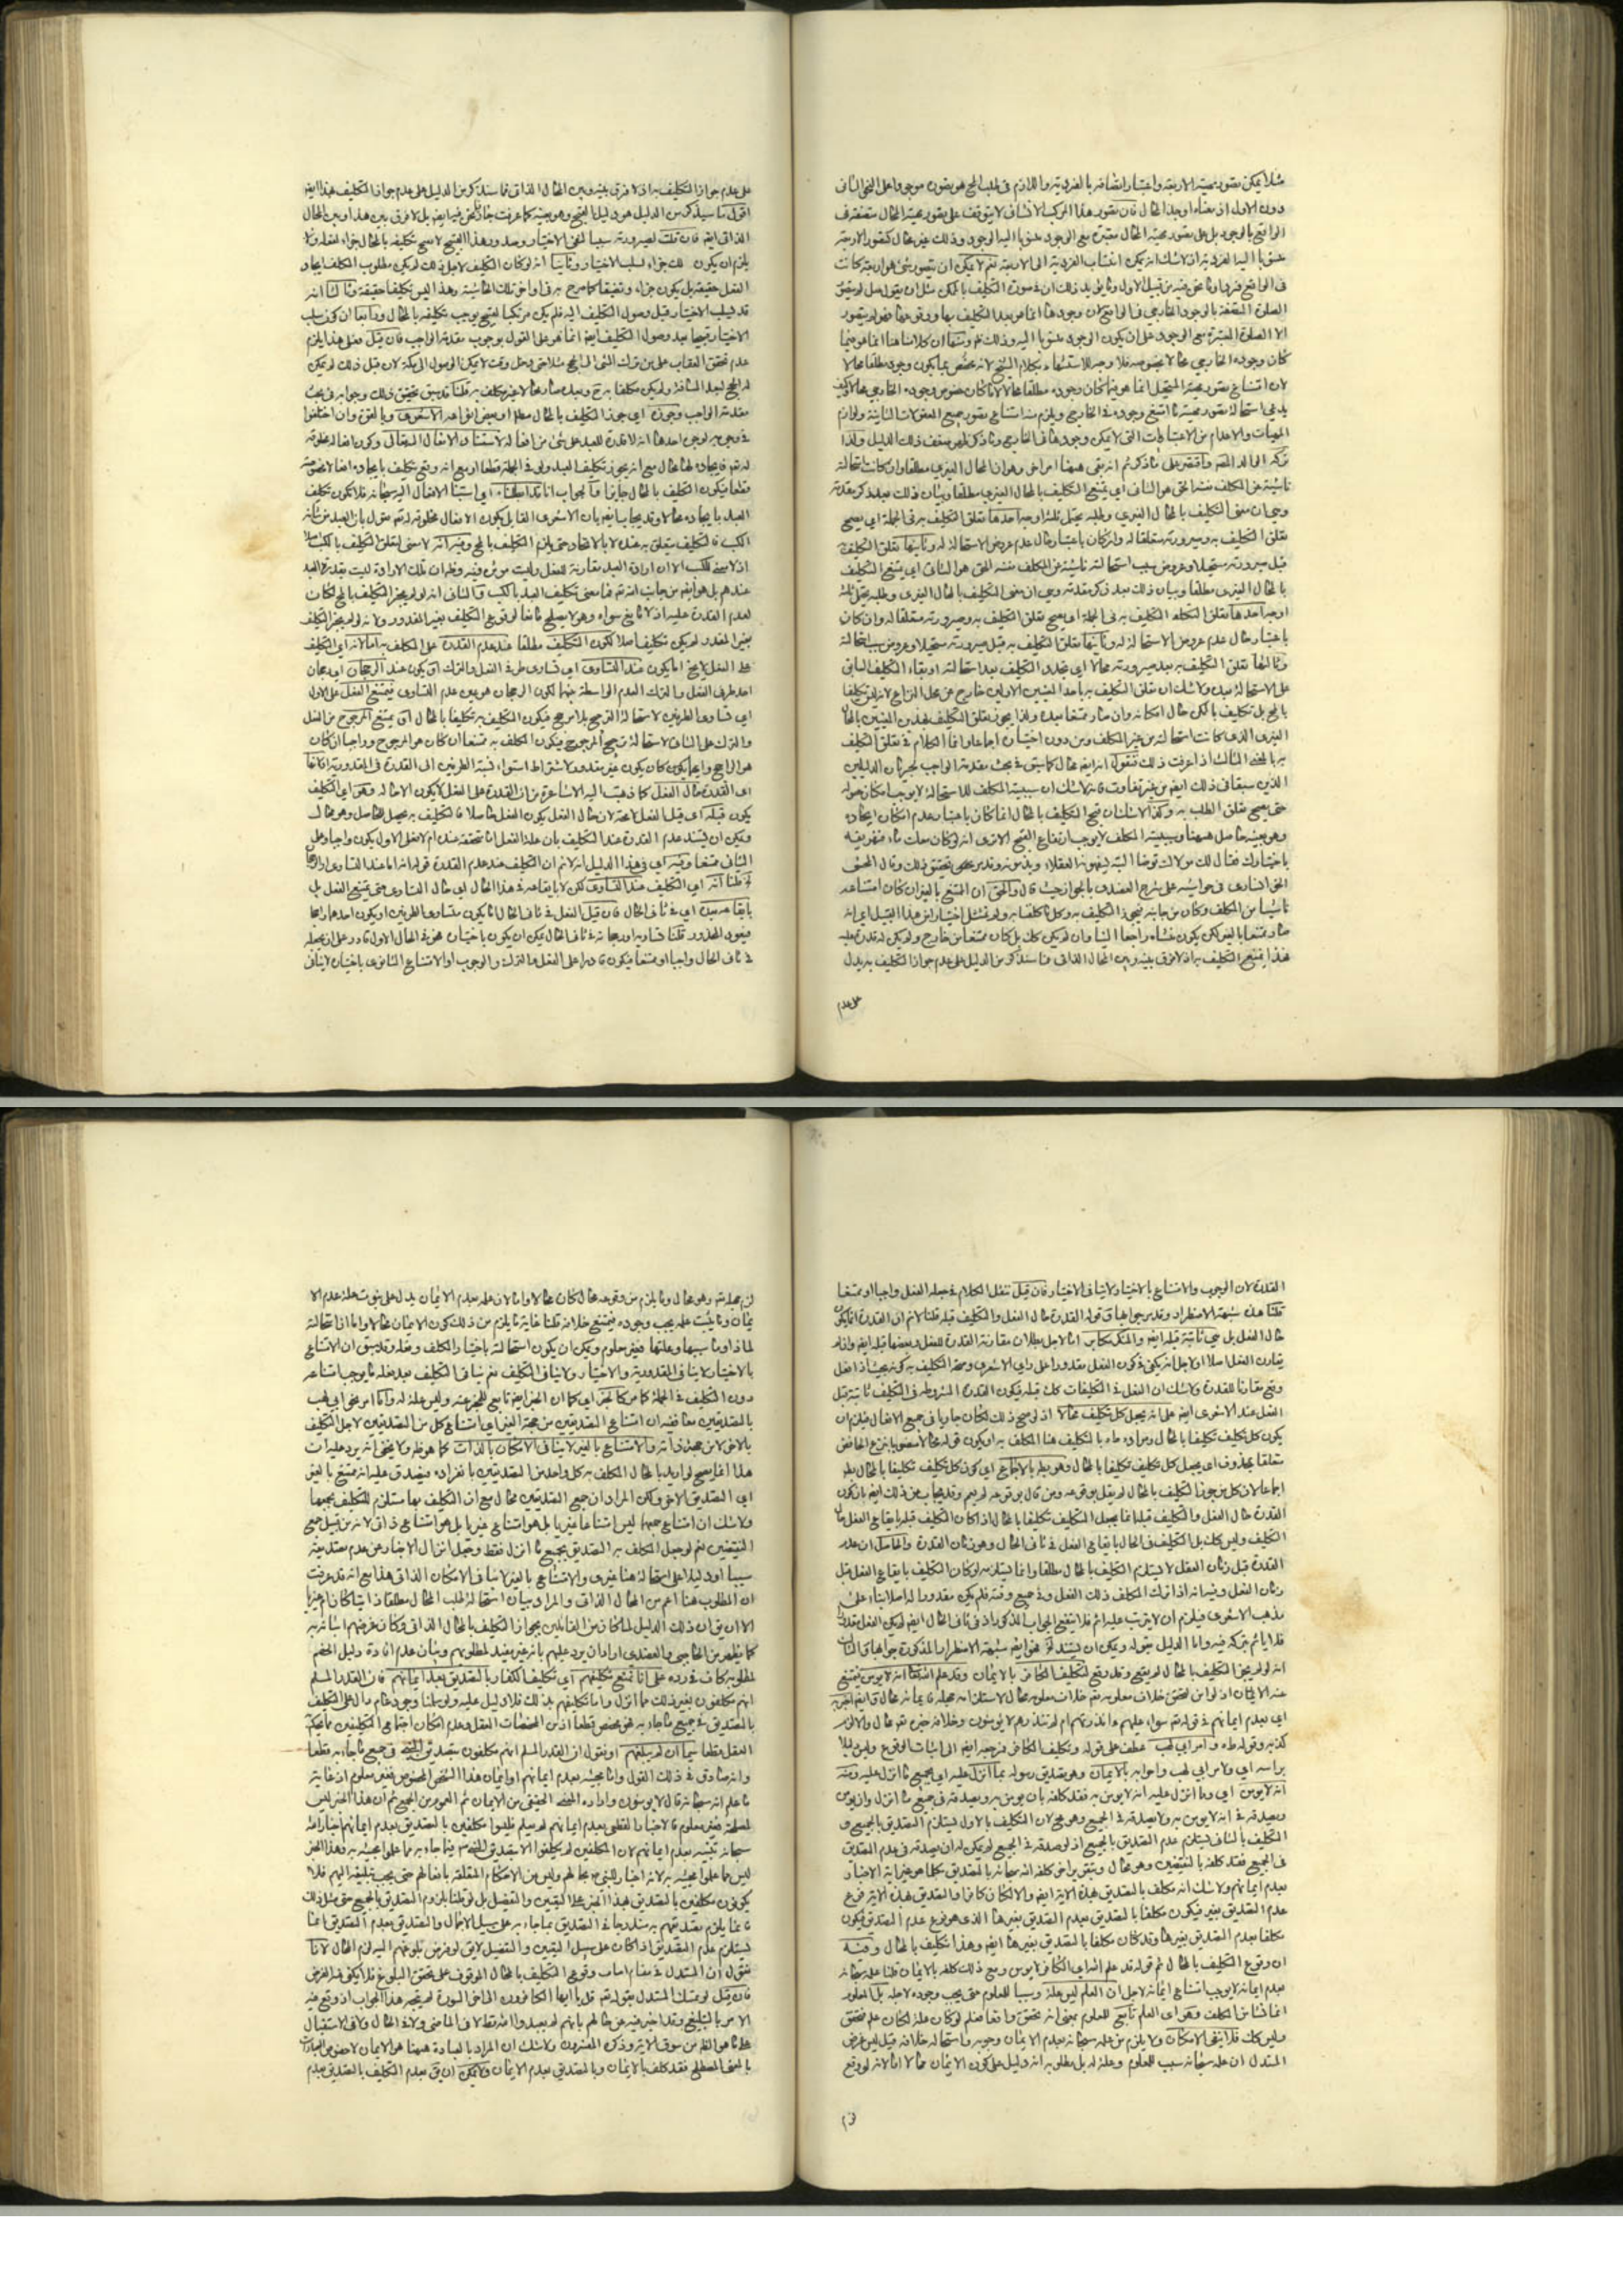 مثلا يمكن تصور مهية الاربعة واعتبار اتصافه بالفردية واللازم في طلب المح هو تصوره موجودا على النحو الثاني
دون الاول اذ معناه اوجد المحال فان تصور هذا المركب الانشائي لا يتوقف على تصور مهية المحال متصفة في
الواقع بالوجود بل على تصور مهية المحال معتبرة مع الوجود منسوبا اليه الوجود وذلك غير محال كتصور الاربعة
منسوبا اليه الفردية اذ لا شك انه يمكن انتساب الفردية الى الاربعة نعم لا يمكن ان يتصور شئ هو اربعة كانت
في الواقع فردا وما نحن فيه من قبيل الاول وما يؤيد ذلك ان في صورة التكليف بالممكن مثل ان يقول صل لم يتصور
الصلوة المتصفة بالوجود الخارجي في الواقع لان وجودها انما هو بعد التكليف بها ووقوعها فهو لم يتصور
الا الصلوة المعتبرة مع الوجود على ان يكون الوجود منسوبا اليه وذلك ظ ومنها ان كلامنا هنا انما هو فيما
كان وجوده الخارجي محالا بخصوصه فلا وجه للاستشهاد بكلام الشيخ لانه يختص بما يكون وجوده مطلقا محالا
لان امتناع تصور مهية المستحيل انما هو فيما كان وجوده مطلقا محالا لا ما كان خصوص وجوده الخارجي محالا كيف
يدعى استحالة تصور مهية ما امتنع وجوده في الخارج ويلزم منه امتناع تصور جميع المعقولات الثانية ولوازم
المهيات والاعدام من الاعتباريات التي لا يمكن وجودها في الخارج وما ذكر ظهر ضعف ذلك الدليل ولذا
تركه الوالد المص واقتصر على ما ذكر ثم انه بقي ههنا امر اخر وهو ان المحال الغيري مطلقا وان كانت استحالته
ناشئة من المكلف نفسه الحق هو الثاني اي يمتنع التكليف بالمحال الغيري مطلقا وبيان ذلك بعد ذكر مقدمة
وهي ان معنى التكليف بالمحال الغيري وطلبه يحتمل ثلثة اوجه احدها تعلق التكليف به في الجملة اي يصح
تعلق التكليف به وصيرورته متعلقا له وان كان باعتبار حال عدم عروض الاستحالة له وثانيها تعلق التكليف به
قبل صيرورته مستحيلا وعروض سبب استحالته ناشئة من المكلف نفسه الحق هو الثاني اي يمتنع التكليف
بالمحال الغيري مطلقا وبيان ذلك بعد ذكر مقدمة وهي ان معنى التكليف بالمحال الغيري وطلبه يحتمل ثلثة
اوجه احدها تعلق التكليف به في الجملة اي يصح تعلق التكليف به وصيرورته متعلقا له وان كان
باعتبار حال عدم عروض الاستحالة له وثانيها تعلق التكليف به قبل صيرورته مستحيلا وعروض سبب استحالته
وثالثها تعلق التكليف به بعد صيرورته محالا اي تجدد التكليف بعد استحالته او بقاء التكليف السابق
على الاستحالة بعده ولا شك ان تعلق التكليف به باحد المعنيين الاولين خارج عن محل النزاع لانه ليس تكليفا
بالمح بل تكليف بالممكن حال امكانه وان صار ممتنعا بعده ولذا يجوز تعلق التكليف بهذين المعنيين بالمحال
الغيري الذي كانت استحالته من غير المكلف ومن دون اختياره اجماعا وانما الكلام في تعلق التكليف
به بالمعنى الثالث اذا عرفت ذلك فنقول انه ايضا محال كما سبق في بحث مقدمة الواجب لجريان الدليلين
الذين سبقا في ذلك ايضا من غير تفاوت فانه لا شك ان سببية المكلف للاستحالة لا يوجب امكان حصوله
حتى يصح تعلق الطلب به وكذا لا شك ان قبح التكليف بالمحال انما كان باعتبار عدم امكان ايجاده
وهو بعينه حاصل ههنا وسببيته المكلف لا يوجب ارتفاع القبح الا ترى انه لو كان معك ماء فضيعته
باختيارك فقال لك مولاك توضأ البتة ليقبحه العقلاء ويذمونه وقد مر بعض تحقيق ذلك وقال المحقق
الخوانساري في حواشيه على شرح العضدي بالجواز حيث قال والحق ان الممتنع بالغير ان كان امتناعه
ناشيا من المكلف وكان من جانبه فيجوز التكليف به وكل ما كلفنا به ولم نمتثل اختيارا من هذا القبيل اي انه
صار ممتنعا بالغير لكن يكون منشاؤه راجعا الينا وان لم يكن كك بل كان ممتنعا من خارج ولم يكن له قدرة عليه
فهذا يمتنع التكليف به اذ لا فرق بينه وبين المحال الذاتي فما سنذكر من الدليل على عدم جواز التكليف به يدل
على عدم
على عدم جواز التكليف به اذ لا فرق بينه وبين المحال الذاتي فما سنذكر من الدليل على عدم جواز التكليف بهذا ايضا
اقول ما سيذكر من الدليل هو دليل القبح وهو بعينه كما عرفت جار فيما نحن فيه ايضا بل لا فرق بين هذا وبين المحال
الذاتي ايضا فان قلت لصيرورته سببا لنفي الاختيار وصدور هذا القبيح لا يقبح تكليفه بالمحال جزاء لفعله ولا
يلزم ان يكون ذلك جزاء لسلب الاختيار وثانيا انه لو كان التكليف لاجل ذلك لم يكن مطلوب المكلف ايجاد
الفعل حقيقة بل يكون جزاء وتضييقا كما صرح به في اواخر تلك الحاشية وهذا ليس تكليفا حقيقة وثالثا انه
قد ليسلب الاختيار قبل وصول التكليف اليه فلم يكن مرتكبا لقبيح يوجب تكليفه بالمحال ورابعا ان كون سلب
الاختيار قبيحا بعد وصول التكليف ايضا انما هو على القول بوجوب مقدمة الواجب فان قيل فعلى هذا يلزم
عدم تحقق العقاب على من ترك المشي الى الحج مثلا حتى دخل وقت لا يمكن الوصول الى مكة لان قبل ذلك لم يكن
له الحج لبعد المسافة ولم يكن مكلفا به ح وبعده صار محالا غير مكلف به قلنا قد سبق تحقيق ذلك وجوابه في بحث
مقدمة الواجب وجوزه اي جوز التكليف بالمحال مطلقا او بعض انواعه الاشعري وبالغوه وان اختلفوا
في وجهه لوجهين احدهما انه لا قدرة للعبد على شئ من افعاله لاستناد الافعال اليه تعالى وكون افعاله مخلوقة
له تعالى فايجاده لها محال مع انه يجوز تكليف العبد ولو في الجملة قطعا او مع انه وقع تكليف بايجاده افعالا مخصوصة
قطعا فيكون التكليف بالمحال جايزا والجواب انا قد ابطلناه اي استناد الافعال اليه سبحانه فلا تكون تكليف
العبد بايجاده محالا وقد يجاب ايضا بان الاشعري القايل بكون الافعال مخلوقة له تعالى يقول بان العبد من شأنه
الكسب فالتكليف يتعلق به عنده لا بالايجاد حتى يلزم التكليف بالمح وفيه انه لا معنى لتعلق التكليف بالكسب اصلا
اذ لا معنى للكسب الا ان ارادة العبد مقارنة للفعل وليست موثرة فيه وظ ان تلك الارادة ليست بقدرة العبد
عندهم بل هو ايضا من جانب الله تعالى فما معنى تكليف العبد بالكسب والثاني انه لو لم يجز التكليف بالمح لكان
لعدم القدرة عليه اذ لا مانع سواه وهو لا يصلح مانعا لوقوع التكليف بغير المقدور ولانه لو لم يجز التكليف
بغير المقدور لم يكن تكليف اصلا لكون التكليف مطلقا عند عدم القدرة على المكلف به اما لانه اي التكليف
على الفعل لا يخ اما يكون عند التساوي اي تساوي طرفي الفعل والترك او يكون عند الرجحان اي رجحان
احد طرفي الفعل والترك لعدم الواسطة بينهما لكون الرجحان هو بعين عدم التساوي فيمتنع الفعل على الاول
اي تساوي الطرفين لاستحالة الترجيح بلا مرجح فيكون التكليف به تكليفا بالمحال او يمتنع المرجوح من الفعل
والترك على الثاني لاستحالة ترجيح المرجوح فيكون المكلف به ممتنعا ان كان هو المرجوح وواجبا ان كان
هو الراجح وايهما يكون كان يكون غير مقدور لاشتراط استواء نسبة الطرفين الى القدرة في المقدورية اتفاقا
اي القدرة حال الفعل كما ذهبت اليه الاشاعرة من ان القدرة على الفعل لا يكون الا حاله وهو اي التكليف
يكون قبله اي قبل الفعل لا معه لان حال الفعل يكون الفعل حاصلا فالتكليف به تحصيل للحاصل وهو محال
ويمكن ان يستند عدم القدرة عند التكليف بان علة الفعل اما متحققة عنده ام لا فعلى الاول يكون واجبا وعلى
الثاني ممتنعا وفيه اي في هذا الدليل انه لا نم ان التكليف عند عدم القدرة قوله انه اما عند التساوي او الرجحان
قلنا انه اي التكليف عند التساوي لكن لا بايقاعه في هذا الحال اي حال التساوي حتى يمتنع الفعل بل
بايقاعه بعده اي في ثاني الحال فان قيل الفعل في ثاني الحال اما يكون متساوي الطرفين او يكون احدهما راجحا
فيعود المحذور قلنا تساويه او رجحانه في ثاني الحال يمكن ان يكون باختياره فهو في الحال الاول قادر على ان يجعله
في ثاني الحال واجبا او ممتنعا فيكون قادرا على الفعل والترك والوجوب او الامتناع الناشي باختياره لا ينافي
القدرة لان الوجوب والامتناع بالاختيار لا ينافي الاختيار فان قيل ننقل الكلام في جعله الفعل واجبا او ممتنعا
قلنا هذه شبهة الاضطرار وقد مر جوابها في قوله القدرة حال الفعل والتكليف قبله قلنا لا نم ان القدرة انما يكون
حال الفعل بل هي ثابتة قبله ايضا والمنكر مكابر اما لاجل بطلان مقارنة القدرة للفعل وبعضها قبله ايضا وان لم
يقارن الفعل اصلا او لاجل انه يكفي في كون الفعل مقدورا على راي الاشعري وصحة التكليف به كونه بحيث اذا فعل
وقع مقارنا للقدرة ولا شك ان الفعل في التكليفات كك قبله فيكون القدرة المشروطة في التكليف ثابتة قبل
الفعل عند الاشعري ايضا على انه يجعل كل تكليف محالا اذ لو صح ذلك لكان جاريا في جميع الافعال فيلزم ان
يكون كل تكليف تكليفا بالمحال ومراده بالتكليف هنا المكلف به او يكون قوله محالا منصوبا بنزع الخافض
متعلقا بمحذوف اي يجعل كل تكليف تكليفا بالمحال وهو بط بالاجماع اي كون كل تكليف تكليفا بالمحال بط
اجماعا لان كل من جوز التكليف بالمحال لم يقل بوقوعه ومن قال بوقوعه لم يعم وقد يجاب عن ذلك ايضا بان كون
القدرة حال الفعل والتكليف قبله انما يجعل التكليف تكليفا بالمحال اذا كان التكليف قبله بايقاع الفعل حال
التكليف وليس كك بل التكليف في الحال بايقاع الفعل في ثاني الحال وهو زمان القدرة والحاصل ان عدم
القدرة قبل زمان الفعل لا يستلزم التكليف بالمحال مطلقا وانما يستلزمه لو كان التكليف بايقاع الفعل قبل
زمان الفعل وفيه انه اذا ترك المكلف ذلك الفعل في جميع وقته فلم يكن مقدورا له اصلا بناء على
مذهب الاشعري فيلزم ان لا يترتب عليه اثم فلا ينفع الجواب المذكور اذ في ثاني الحال ايضا لم يكن الفعل مقدورا
فلا ياثم بتركه فيه واما الدليل بقوله ويمكن ان يستند فهو ايضا شبهة الاضطرار المذكورة جوابها والثالث
انه لو لم يجز التكليف بالمحال لم يقع وقد وقع لتكليف الكافر بالايمان وقد علم الله تعالى انه لا يومن فيمتنع
منه الايمان اذ لو امن لتحقق خلاف معلومه تعالى وخلاف معلومه محال لاستلزامه جهله فايمانه محال وايضا اخبر به
اي بعدم ايمانهم في قوله تعالى سواء عليهم ءانذرتهم ام لم تنذرهم لا يومنون وخلاف خبره تعالى محال والا لزم
كذبه وقوله وامر ابي لهب عطف على قوله وتكليف الكافر فمرجعه ايضا الى اثبات الوقوع وليس دليلا
براسه اي ولامر ابي لهب واخوانه بالايمان وهو تصديق رسوله بما انزل عليه اي بجميع ما انزل عليه ومنه
انه لا يومن اي وما انزل عليه انه لا يومن به فقد كلفه بان يومن به ويصدقه في جميع ما انزل وان يومن
ويصدقه في انه لا يومن به ولا يصدقه في الجميع وهو مح لان التكليف بالاول يستلزم التصديق بالجميع و
التكليف بالثاني يستلزم عدم التصديق بالجميع اذ لو صدقه في الجميع لم يمكن له ان يصدقه في عدم التصديق
في الجميع فقد كلفه بالنقيضين وهو محال وبتقرير اخر كلفه الله سبحانه بالتصديق بكل ما هو من اية الاخبار
بعدم ايمانهم ولا شك انه مكلف بالتصديق بهذه الاية ايضا والا لكان كافرا والتصديق بهذه الاية فرع
عدم التصديق بغيره فيكون مكلفا بالتصديق بعدم التصديق بغيرها الذي هو فرع عدم التصديق فيكون
مكلفا بعدم التصديق بغيرها وقد كان مكلفا بالتصديق بغيرها ايضا وهذا تكليف بالمحال وفيه
ان وقوع التكليف بالمحال ثم قوله قد علم الله اي الكافر لا يومن ومع ذلك كلفه بالايمان قلنا علمه سبحانه
بعدم ايمانه لا يوجب امتناع ايمانه لاجل ان العلم ليس علة وسببا للمعلوم حتى يجب وجوده لاجله بل المعلوم
انما نشا من المكلف وهو اي العلم تابع للمعلوم بمعنى انه يتحقق وانما فعله لو كان علة لكان علة تحقق
وليس كك فلا ينفي الامكان ولا يلزم من علمه سبحانه بعدم الايمان وجوبه واستحالة خلافه قيل ليس غرض
المستدل ان علمه سبحانه سبب للمعلوم وعلة له بل مطلوبه انه دليل على كون الايمان محالا اما لانه لو وقع
لزم
لزم جهله تعالى وهو محال وما يلزم من وقوعه محال كان محالا واما لان علمه بعدم الايمان يدل على ثبوت علة عدم الا
يمان وما يثبت علته يجب وجوده فيمتنع خلافه قلنا غاية ما يلزم من ذلك كون الايمان محالا واما ان استحالته
لماذا وما سببها وعلتها فغير معلوم ويمكن ان يكون استحالته باختيار المكلف وفعله وقد سبق ان الامتناع
بالاختيار لا ينافي المقدورية والاختيار ولا ينافي التكليف نعم ينافي التكليف بعد فعله ما يوجب امتناعه
دون التكليف في الجملة كما مر كالخبر اي كما ان الخبر ايضا تابع للمخبر عنه وليس علة له واما امر نحو ابي لهب
بالتصديقين معا ففيه ان امتناع التصديقين من جهة الغير اي امتناع كل من التصديقين لاجل التكليف
بالاخر لا من جهة ذاته والامتناع بالغير لا ينافي الامكان بالذات كما هو ظ ولا يخفى انه يرد عليه ان
هذا انما يصح لو اريد بالمحال المكلف به كل واحد من التصديقين بانفراده فيصدق عليه انه ممتنع بالغير
اي التصديق الاخر ولكن المراد ان جميع التصديقين محال مع ان التكليف بهما مستلزم للتكليف بجمعهما
ولا شك ان امتناع جمعهما ليس امتناعا غيريا بل هو امتناع ذاتي لانه من قبيل جمع
النقيضين نعم لو جعل المكلف به التصديق بجميع ما انزل فقط وجعل انزال الاخبار عن عدم تصديقه
سببا او دليلا على استحالته هنا غيري والامتناع بالغير لا ينافي الامكان الذاتي هذا مع انه قد عرفت
ان المطلوب هنا اعم من المحال الذاتي والمراد بيان استحالة طلب المحال مطلقا ذاتيا كان ام غيريا
الا ان يق ان ذلك الدليل لما كان من القائلين بجواز التكليف بالمحال الذاتي وكان غرضهم اثباته به
كما يظهر من الحاجبي والعضدي اراد ان يرد عليهم بانه غير مفيد لمطلوبهم وبيان عدم افادة دليل الخصم
لمطلوبه كاف في رده على انا نمنع تكليفهم اي تكليف الكفار بالتصديق بعدم ايمانهم فان القدر المسلم
انهم مكلفون بغير ذلك مما انزل واما تكليفهم بذلك فلا دليل عليه ولو سلمنا وجود عام دال على التكليف
بالتصديق في جميع ما جاء به فهو مخصص قطعا اذ من المخصصات العقل وعدم امكان اجتماع التكليفين مما يحكم
العقل قطعا سيما ان لم يبلغهم او نقول ان القدر المسلم انهم مكلفون بتصديق النبي في جميع ما جاء به قطعا
وانه صادق في ذلك القول واما مجيئه بعدم ايمانهم او ايمان هذا الشخص المخصوص فغير معلوم اذ غاية
ما علم انه سبحانه قال لا يومنون وارادة المعنى الحقيقي من الايمان ثم العموم من الجميع ثم ان هذا الخبر ليس
لمصلحة فغير معلوم فالاخبار القطعي بعدم ايمانهم لم يعلم فليسوا مكلفين بالتصديق بعدم ايمانهم اخبارا منه
سبحانه نبيه بعدم ايمانهم لان المكلفين لم يكلفوا الا بتصديق النبي ص فيما جاء به مما علموا مجيئه به وهذا الخبر
ليس مما علموا مجيئه به لانه اخبار للنبي ص بحالهم وليس من الاحكام المتعلقة بافعالهم حتى يجب تبليغه اليهم فلا
يكونون مكلفين بالتصديق بهذا الخبر على التعيين والتفصيل بل لو قلنا بلزوم التصديق بالجميع حتى مثل ذلك
فانما يلزم تصديقهم به مندرجا في التصديق بما جاء به على سبيل الاجمال والتصديق بعدم التصديق انما
يستلزم عدم التصديق اذا كان على سبيل التعيين والتفصيل لا يق لو فرض بلوغهم اليه لزم المحال لانا
نقول ان المستدل في مقام اثبات وقوع التكليف بالمحال الموقوف على تحقق البلوغ فلا يكفي فيه الفرض
فان قيل لو تمسك المستدل بقوله تعالى قل يا ايها الكافرون الى اخر السورة لم يتجه هذا الجواب اذ وقع فيه
الامر بالتبليغ وقد اخبر فيه عن حالهم بانهم لم يعبدوا الله قط لا في الماضي ولا في الحال ولا في الاستقبال
على ما هو الظ من سوق الاية وذكره المفسرون ولا شك ان المراد بالعبادة ههنا هو الايمان لا خصوص العبادة
بالمعنى المصطلح فقد كلف بالايمان وبالتصديق بعدم الايمان قلنا يمكن ان يق بعدم التكليف بالتصديق بعدم